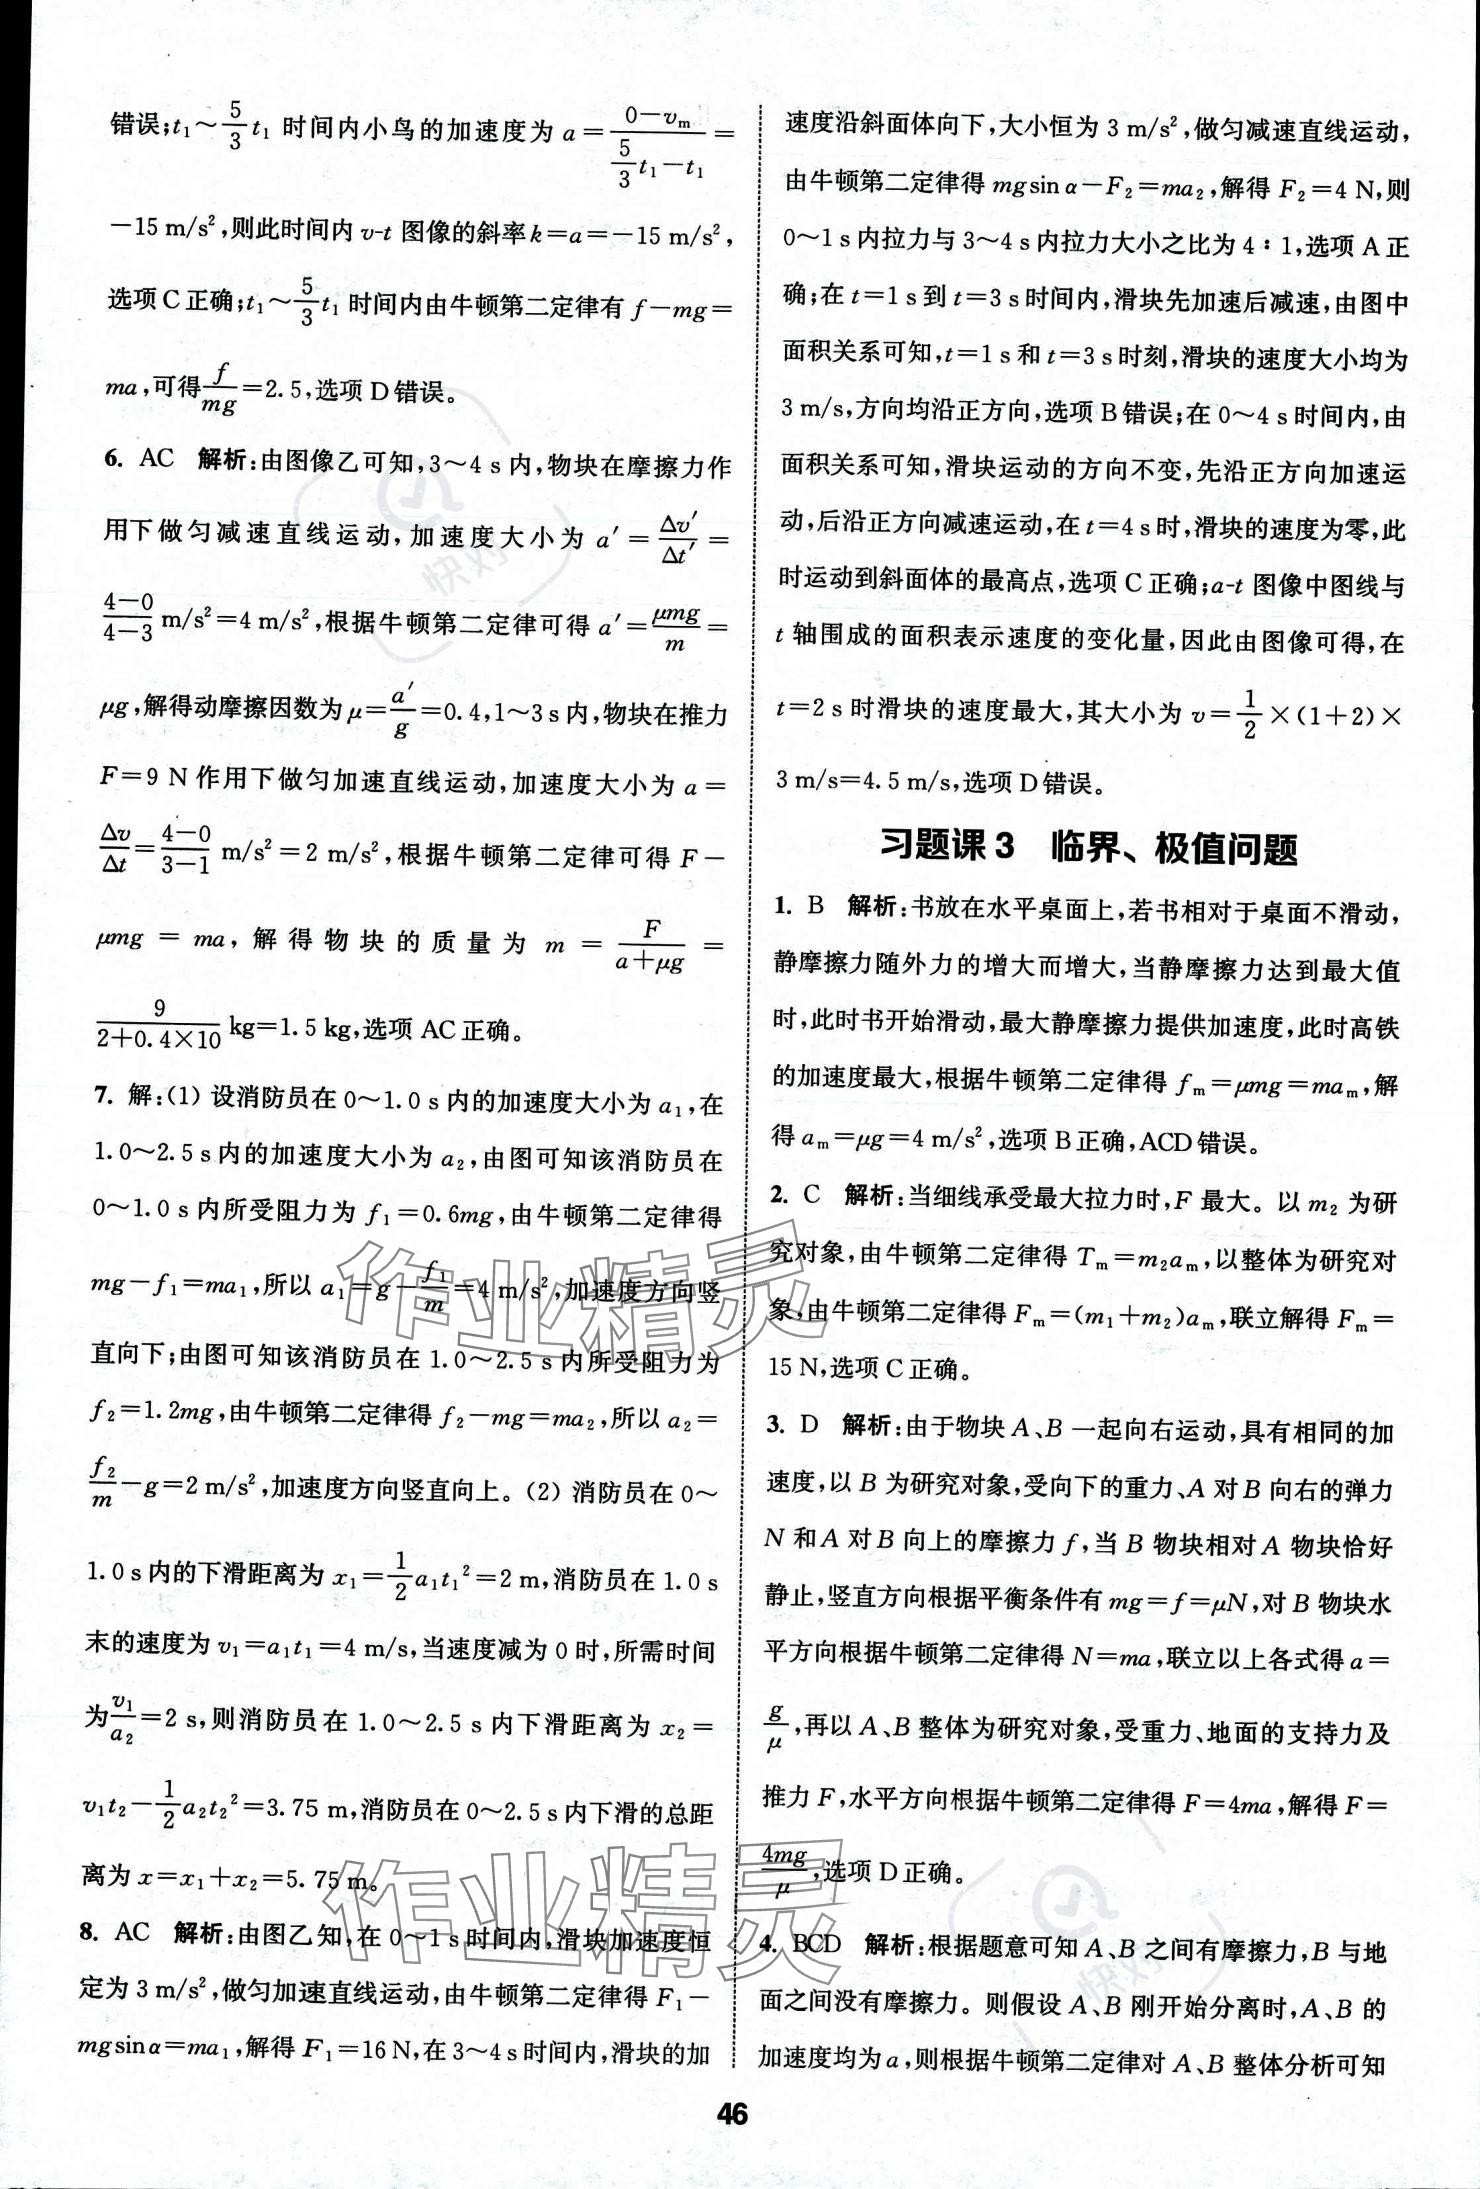 错误;t₁～5/3 t₁ 时间内小鸟的加速度为 a＝(0－vₘ)/(5/3 t₁－t₁)＝
－15 m/s²,则此时间内 v-t 图像的斜率 k＝a＝－15 m/s²,
选项 C 正确;t₁～5/3 t₁ 时间内由牛顿第二定律有 f－mg＝
ma,可得 f/mg＝2.5,选项 D 错误。
6. AC 解析:由图像乙可知,3～4 s 内,物块在摩擦力作
用下做匀减速直线运动,加速度大小为 a′＝Δv′/Δt′＝
(4－0)/(4－3) m/s²＝4 m/s²,根据牛顿第二定律可得 a′＝μmg/m＝
μg,解得动摩擦因数为 μ＝a′/g＝0.4,1～3 s 内,物块在推力
F＝9 N 作用下做匀加速直线运动,加速度大小为 a＝
Δv/Δt＝(4－0)/(3－1) m/s²＝2 m/s²,根据牛顿第二定律可得 F－
μmg＝ma,解得物块的质量为 m＝F/(a＋μg)＝
9/(2＋0.4×10) kg＝1.5 kg,选项 AC 正确。
7. 解:(1) 设消防员在 0～1.0 s 内的加速度大小为 a₁,在
1.0～2.5 s 内的加速度大小为 a₂,由图可知该消防员在
0～1.0 s 内所受阻力为 f₁＝0.6mg,由牛顿第二定律得
mg－f₁＝ma₁,所以 a₁＝g－f₁/m＝4 m/s²,加速度方向竖
直向下;由图可知该消防员在 1.0～2.5 s 内所受阻力为
f₂＝1.2mg,由牛顿第二定律得 f₂－mg＝ma₂,所以 a₂＝
f₂/m－g＝2 m/s²,加速度方向竖直向上。(2) 消防员在 0～
1.0 s 内的下滑距离为 x₁＝1/2 a₁t₁²＝2 m,消防员在 1.0 s
末的速度为 v₁＝a₁t₁＝4 m/s,当速度减为 0 时,所需时间
为 v₁/a₂＝2 s,则消防员在 1.0～2.5 s 内下滑距离为 x₂＝
v₁t₂－1/2 a₂t₂²＝3.75 m,消防员在 0～2.5 s 内下滑的总距
离为 x＝x₁＋x₂＝5.75 m。
8. AC 解析:由图乙知,在 0～1 s 时间内,滑块加速度恒
定为 3 m/s²,做匀加速直线运动,由牛顿第二定律得 F₁－
mgsin α＝ma₁,解得 F₁＝16 N,在 3～4 s 时间内,滑块的加
速度沿斜面体向下,大小恒为 3 m/s²,做匀减速直线运动,
由牛顿第二定律得 mgsin α－F₂＝ma₂,解得 F₂＝4 N,则
0～1 s 内拉力与 3～4 s 内拉力大小之比为 4∶1,选项 A 正
确;在 t＝1 s 到 t＝3 s 时间内,滑块先加速后减速,由图中
面积关系可知,t＝1 s 和 t＝3 s 时刻,滑块的速度大小均为
3 m/s,方向均沿正方向,选项 B 错误;在 0～4 s 时间内,由
面积关系可知,滑块运动的方向不变,先沿正方向加速运
动,后沿正方向减速运动,在 t＝4 s 时,滑块的速度为零,此
时运动到斜面体的最高点,选项 C 正确;a-t 图像中图线与
t 轴围成的面积表示速度的变化量,因此由图像可得,在
t＝2 s 时滑块的速度最大,其大小为 v＝1/2×(1＋2)×
3 m/s＝4.5 m/s,选项 D 错误。
习题课 3 临界、极值问题
1. B 解析:书放在水平桌面上,若书相对于桌面不滑动,
静摩擦力随外力的增大而增大,当静摩擦力达到最大值
时,此时书开始滑动,最大静摩擦力提供加速度,此时高铁
的加速度最大,根据牛顿第二定律得 fₘ＝μmg＝maₘ,解
得 aₘ＝μg＝4 m/s²,选项 B 正确,ACD 错误。
2. C 解析:当细线承受最大拉力时,F 最大。以 m₂ 为研
究对象,由牛顿第二定律得 Tₘ＝m₂aₘ,以整体为研究对
象,由牛顿第二定律得 Fₘ＝(m₁＋m₂)aₘ,联立解得 Fₘ＝
15 N,选项 C 正确。
3. D 解析:由于物块 A、B 一起向右运动,具有相同的加
速度,以 B 为研究对象,受向下的重力、A 对 B 向右的弹力
N 和 A 对 B 向上的摩擦力 f,当 B 物块相对 A 物块恰好
静止,竖直方向根据平衡条件有 mg＝f＝μN,对 B 物块水
平方向根据牛顿第二定律得 N＝ma,联立以上各式得 a＝
g/μ,再以 A、B 整体为研究对象,受重力、地面的支持力及
推力 F,水平方向根据牛顿第二定律得 F＝4ma,解得 F＝
4mg/μ,选项 D 正确。
4. BCD 解析:根据题意可知 A、B 之间有摩擦力,B 与地
面之间没有摩擦力。则假设 A、B 刚开始分离时,A、B 的
加速度均为 a,则根据牛顿第二定律对 A、B 整体分析可知
46
作业精灵
作业精灵
快对
快对